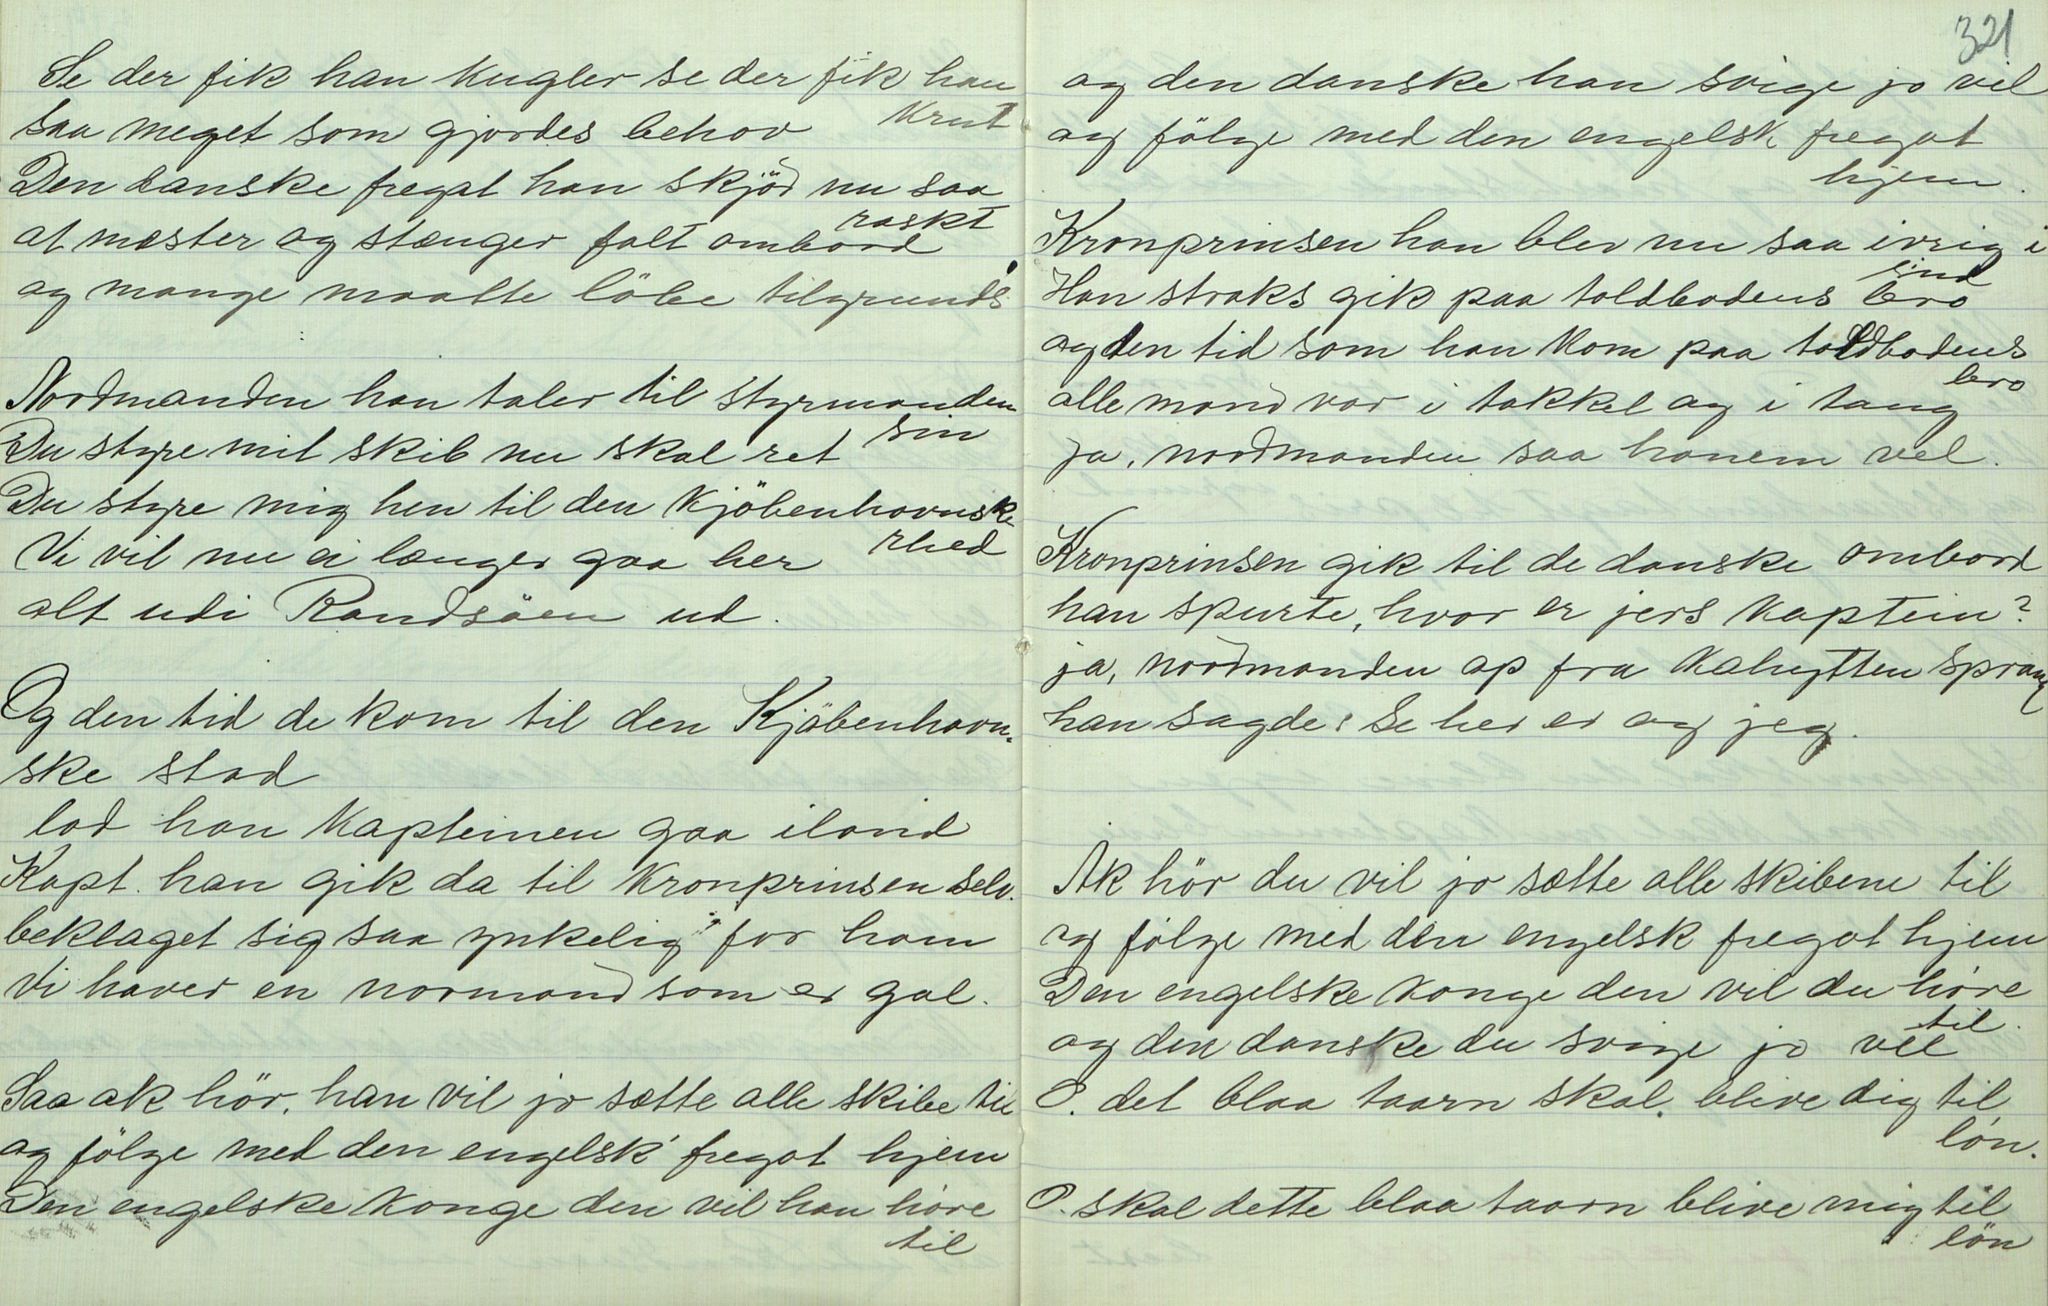 Se der fik han Kugler se der fik han
Krut
saa meget som gjordes behov
Den danske fregat han skjöd nu saa
raskt
at mester og stænger falt ombord
og mange maatte löbe tilgrunds

Nordmanden han taler til styrmanden
sin
Du styre mit skib nu skal ret
Du styre mig hen til den Kjöbenhavnske
rhed
Vi vil nu ei længer gaa her
alt udi Randsöen ud.

Og den tid de kom til den Kjöbenhavn-
ske stad
lod han Kapteinen gaa iland
Kapt. han gik da til Kronprinsen selv.
beklaget sig saa ynkelig for ham
Vi haver en normand som er gal.

Saa ak hör, han vil jo sætte alle skibe til
og fölge med den engelsk fregat hjem
Den engelske Konge den vil han höre
til

321
og den danske han svige jo vil
og fölge med den engelsk fregat
hjem.
Kronprinsen han blev nu saa ivrig i
sind
Han straks gik paa toldbodens bro
og den tid som han Kom paa toldbodens
bro
alle mand var i takkel og i tang
ja, nordmanden saa honem vel.

Kronprinsen gik til de danske ombord
han spurte, hvor er jers Kaptein?
ja, nordmanden op fra Kahytten sprang
han sagde: Se her er og jeg.

Ak hör du vil jo sætte alle skibene til
og fölge med den engelsk fregat hjem
Den engelske Konge den vil du höre
til.
og den danske du svige jo vil
O. det blaa taarn skal. blive dig til
lön.

O. skal dette blaa taarn blive mig til
lön